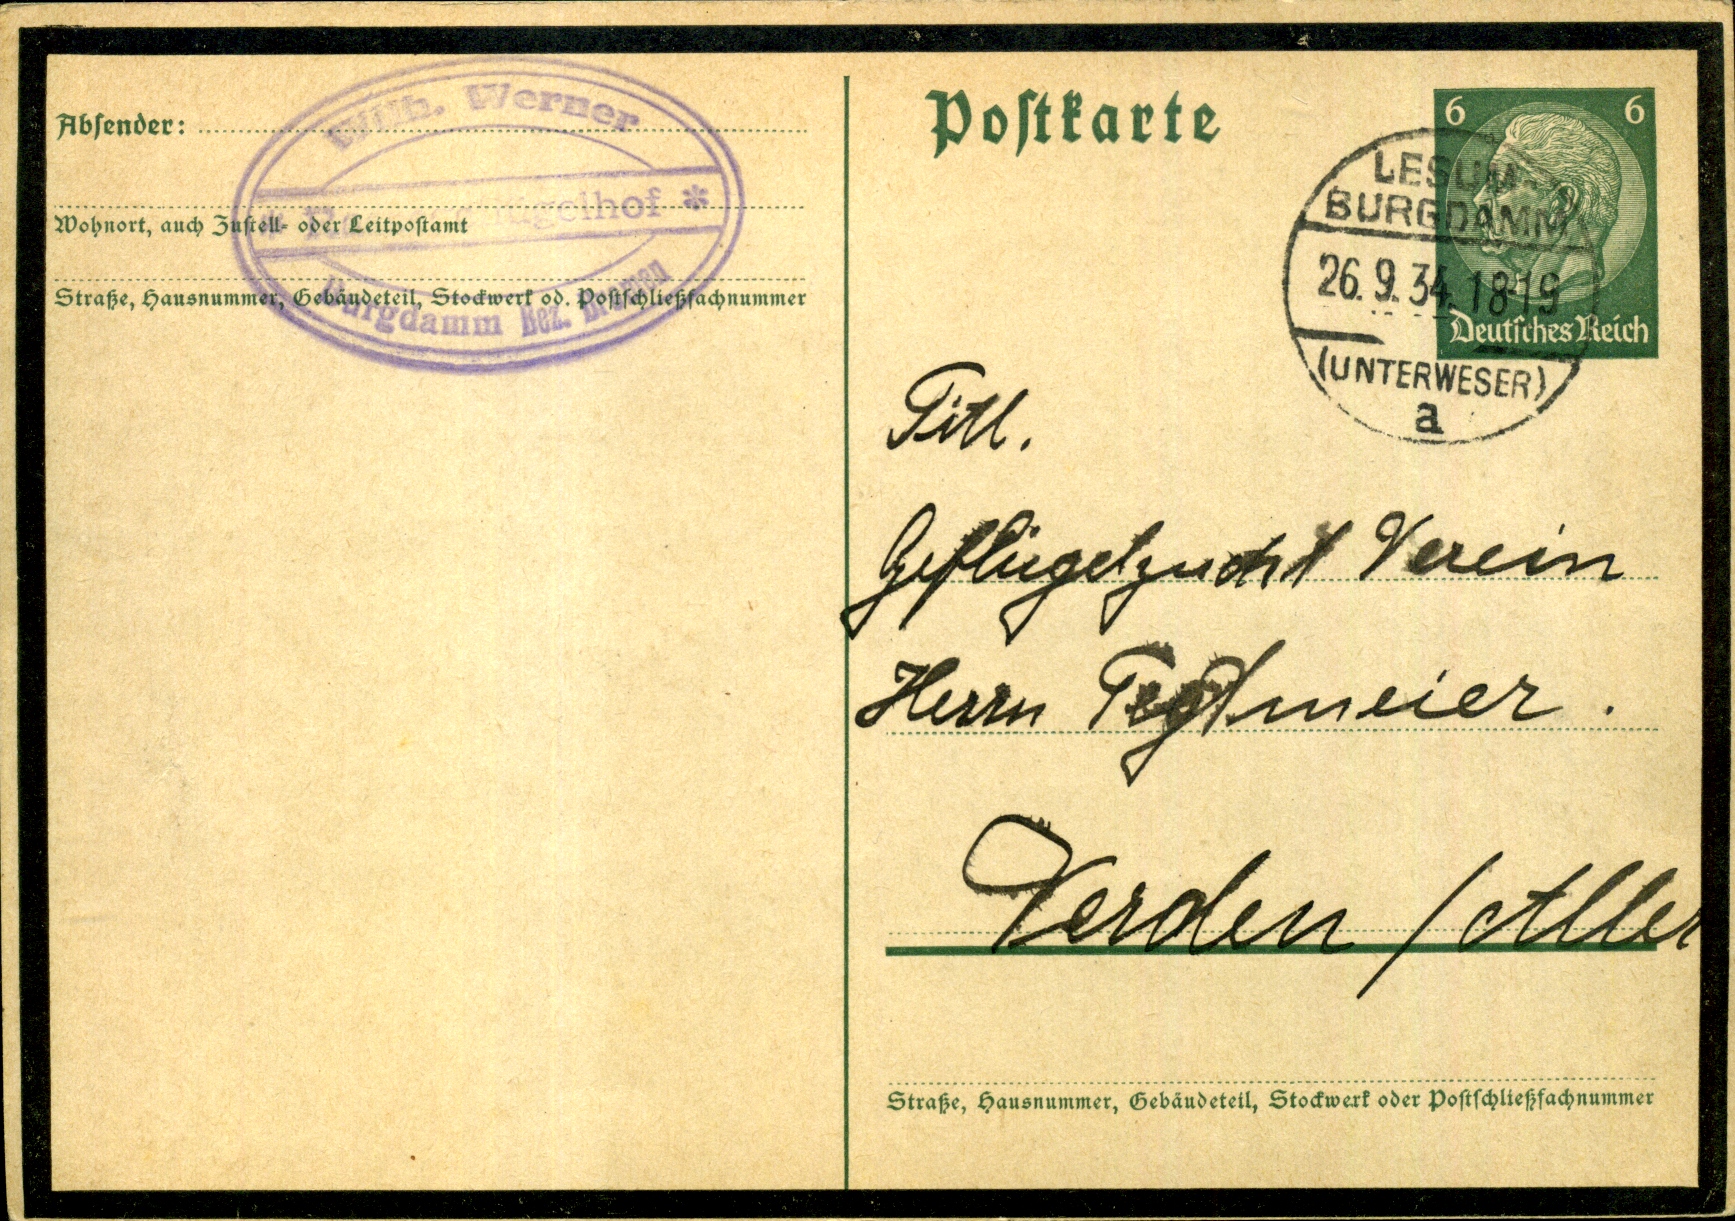 Absender:
Wilh. Werner
Geflügelhof *
Burgdamm Bez. Bremen
Wohnort, auch Zustell- oder Leitpostamt
Straße, Hausnummer, Gebäudeteil, Stockwerk od. Postschließfachnummer
Postkarte
6 6
Deutsches Reich
LESUM-
BURGDAMM
26.9.34.18-19
(UNTERWESER)
a
Titl.
Geflügelzucht Verein
Herrn Tegtmeier.
Verden / Aller
Straße, Hausnummer, Gebäudeteil, Stockwerk oder Postschließfachnummer